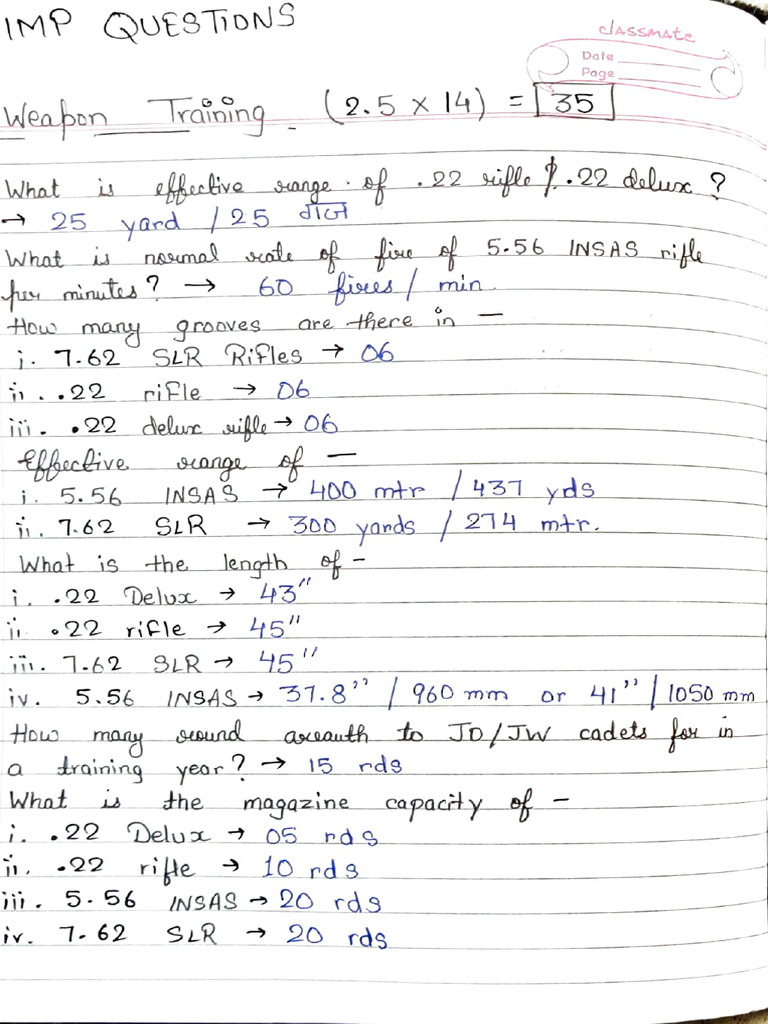 IMP QUESTIONS
classmate
Date
Page
Weapon Training (2.5 × 14) = 35
What is effective range of .22 rifle / .22 delux ?
→ 25 yard / 25 गज
What is normal rate of fire of 5.56 INSAS rifle
per minutes? → 60 fires / min.
How many grooves are there in —
i. 7.62 SLR Rifles → 06
ii. .22 rifle → 06
iii. .22 delux rifle → 06
Effective range of —
i. 5.56 INSAS → 400 mtr / 437 yds
ii. 7.62 SLR → 300 yards / 274 mtr.
What is the length of -
i. .22 Delux → 43"
ii. .22 rifle → 45"
iii. 7.62 SLR → 45"
iv. 5.56 INSAS → 37.8" / 960 mm or 41" / 1050 mm
How many round areauth to JD/JW cadets for in
a training year? → 15 rds
What is the magazine capacity of -
i. .22 Delux → 05 rds
ii. .22 rifle → 10 rds
iii. 5.56 INSAS → 20 rds
iv. 7.62 SLR → 20 rds